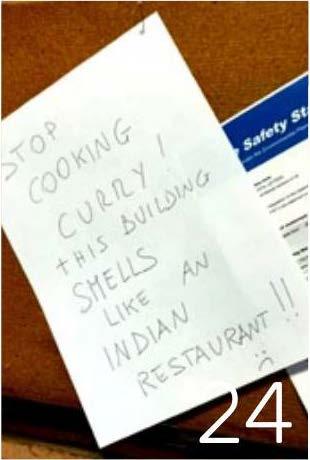 STOP
COOKING
CURRY!
THIS BUILDING
SMELLS
LIKE AN
INDIAN
RESTAURANT!!
Safety Sta
24